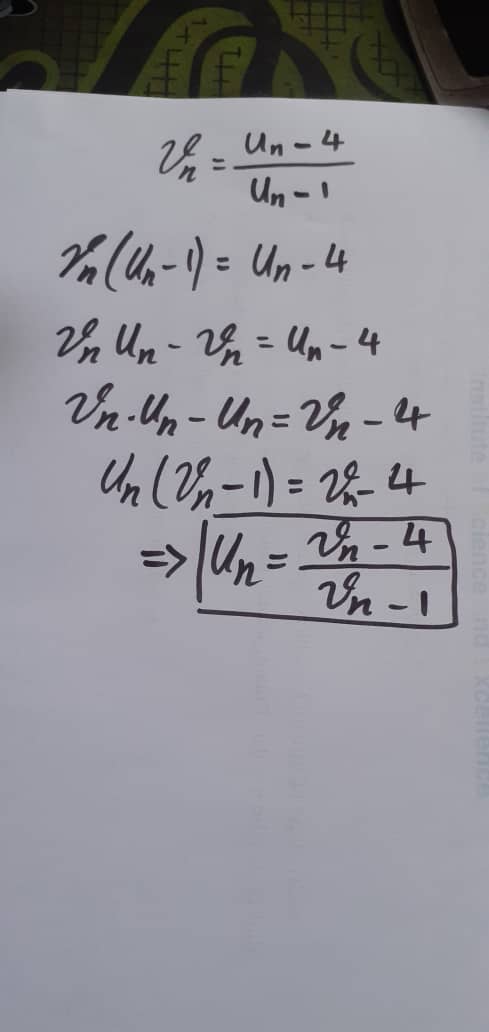 𝒱n = (Un - 4)/(Un - 1)
𝒱n(Un - 1) = Un - 4
𝒱n Un - 𝒱n = Un - 4
𝒱n . Un - Un = 𝒱n - 4
Un(𝒱n - 1) = 𝒱n - 4
=> Un = (𝒱n - 4)/(𝒱n - 1)